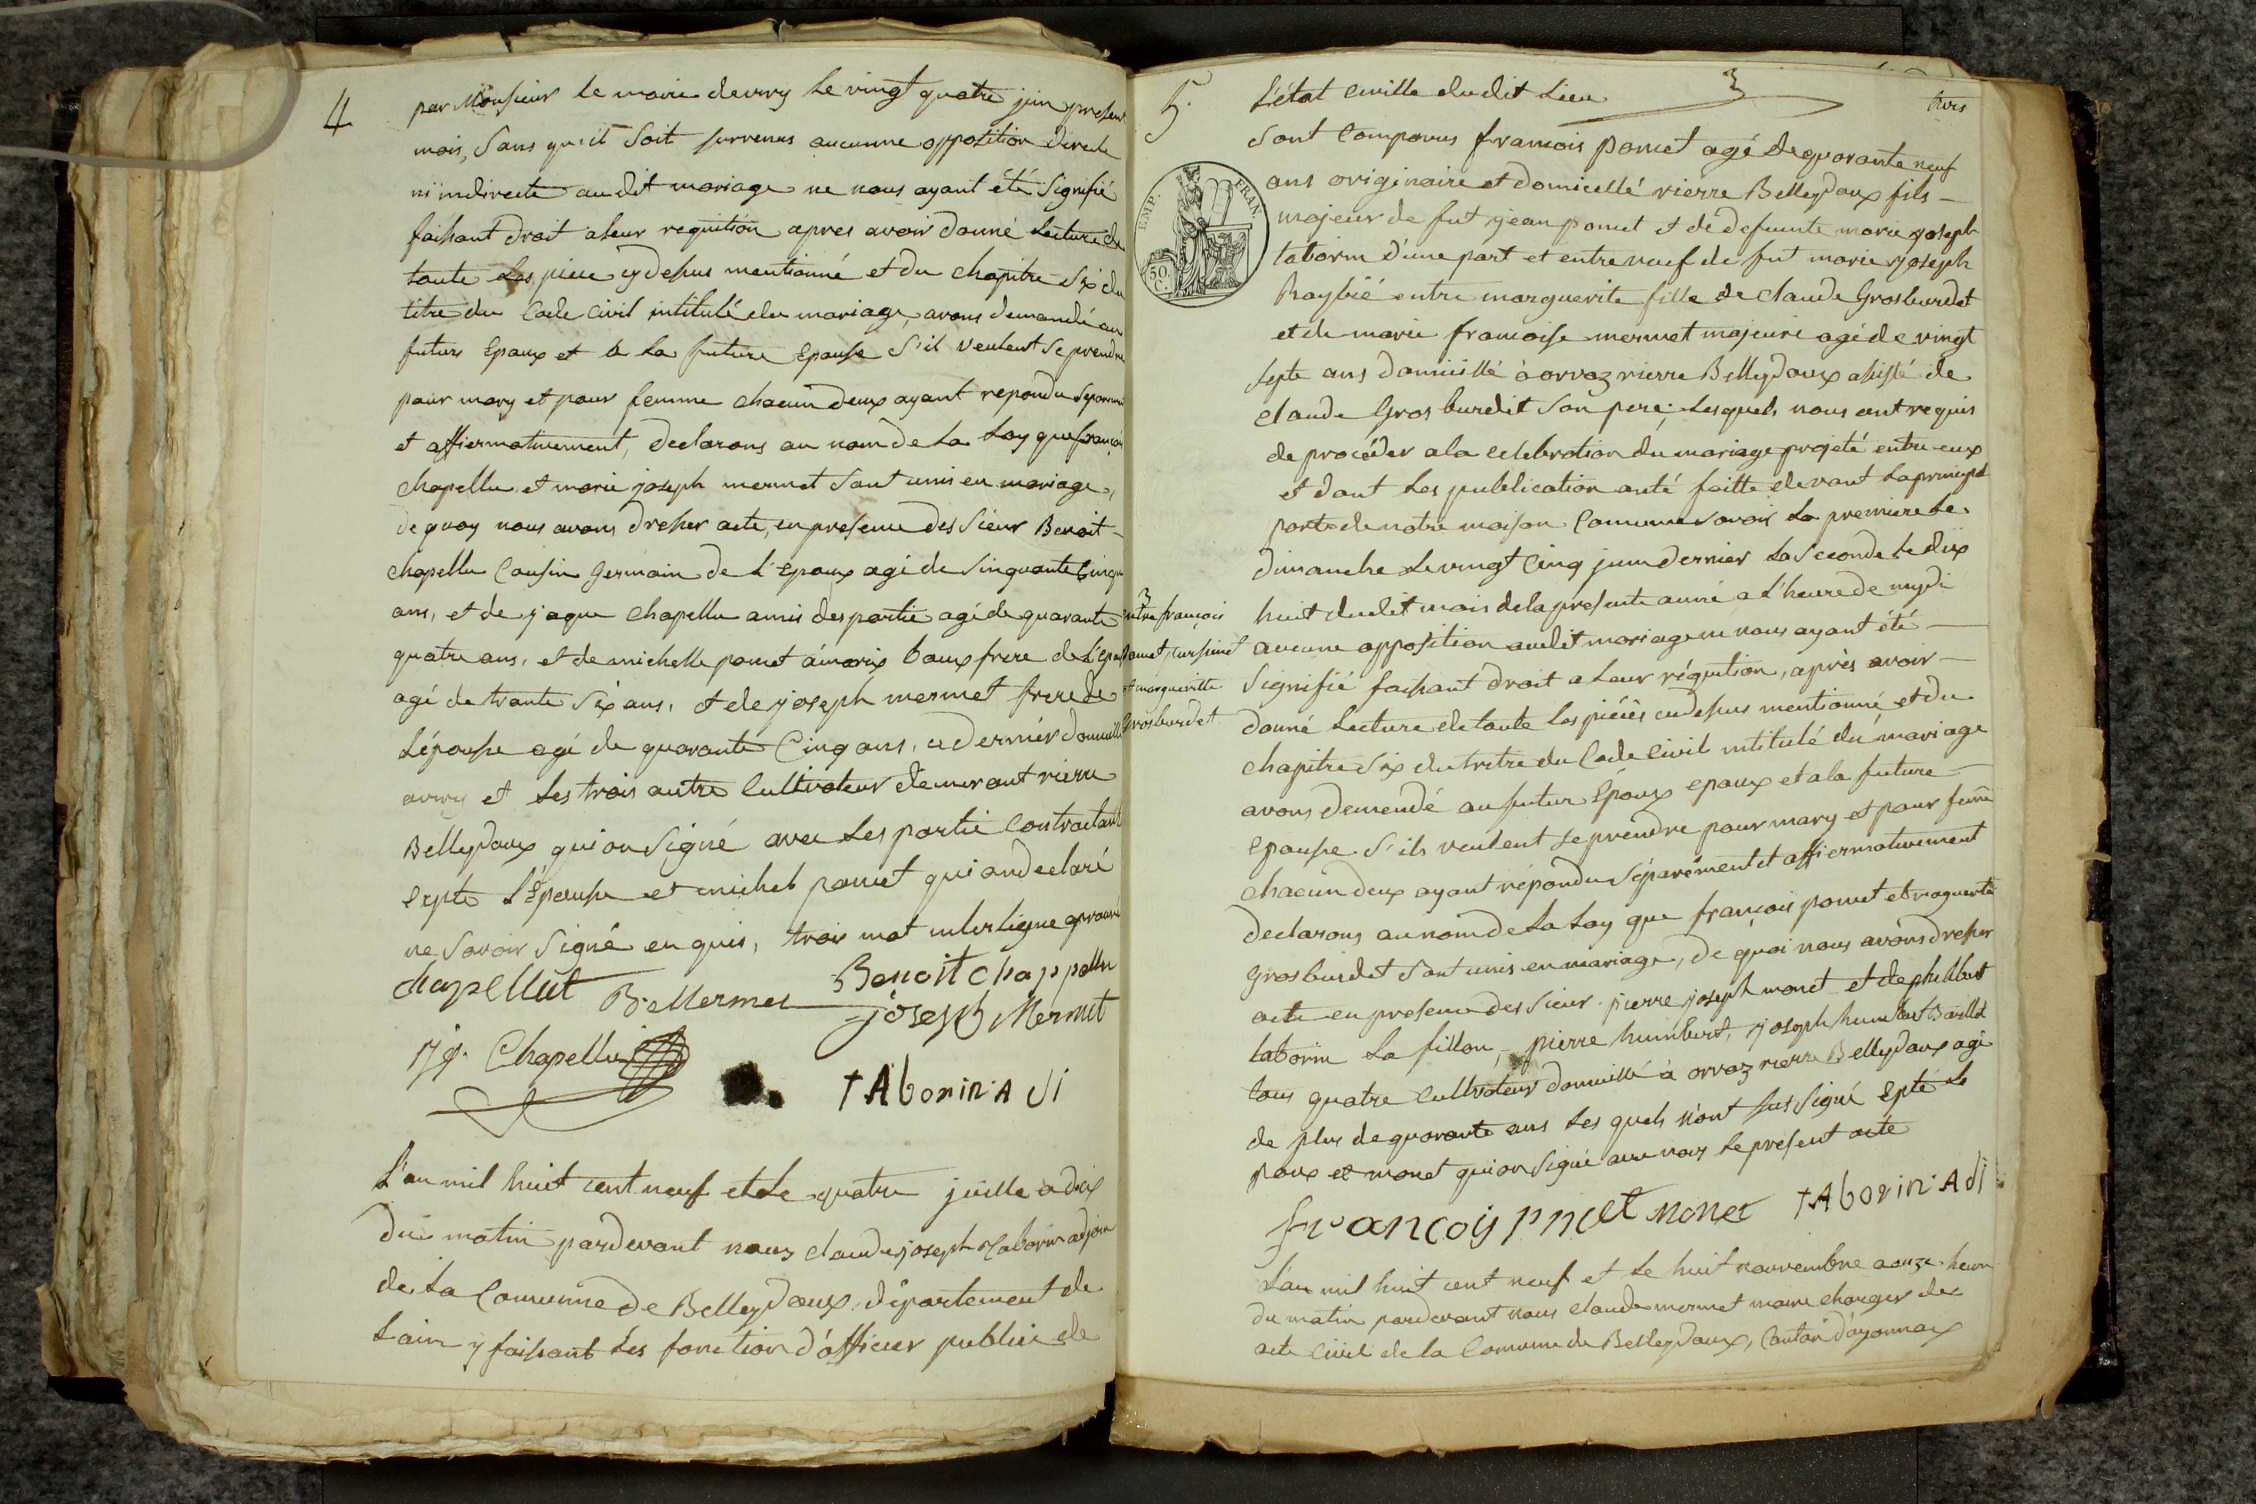 4
par Monsieur le maire devry le vingt quatre juin present
mois, Sans qu'il Soit survenus aucunne opposition directe
ni indirecte au dit mariage ne nous ayant été Signifié
faisant droit aleur requition apres avoir donné Lecture de
toute Les piece cy desus mentionné et du chapitre Six du
titre du Code Civil intitulé du mariage, avons demandé au
futurs Epoux et a La future Epouse S'il veulent Se prendre
pour mary et pour femme chacun deux ayant repondu Separement
et affiermativement, declarons au nom de La Loy que françois
chapellu et marie joseph mermet Sont unis en mariage,
de quoy nous avons dresser acte, en presence des Sieur Benoit
chapellu Cousin Germain de L'epoux agé de Sinquante Cinq
ans, et de jaque chapellu amis des partie agé de quarante
quatre ans, et de michelle pomet baux frere de L'epoux
agé de trante Six ans, et de joseph mermet frere de
L'épouse agé de quarante Cinq ans, ce dernier domicillé
et Les trois autre Cultivateur demeurant rierre
Belleydoux qui on Signé avec Les partie Contractant
Cepte L'Epouse et michel pomet qui on declaré
ne Savoir Signé enquis, trois mot interligne aprouvé
chapellut BMermet Benoit chappellu
joseph Mermet
Chapellu
tAborin Adi
L'an mil huit cent neuf et Le quatre juille a dix
du matin pardevant nous claude joseph taborin adjoin
de La Commune de Belleydoux, département de
Lain y faisant Les fonction d'officier public de
5.
L'état civille dudit Lieu
Sont Comparus francois pomet agé de quarante neuf
ans originaire et domicellé rierre Belleydoux fils
EMP. FRAN.
50. C.
majeur de fut jean pomet et de defuinte marie joseph
taborin d'une part et entre veuf de fut marie joseph
Raybié entre marguerite fille de claude Grosburdet
et de marie francoise mermet majeure agé de vingt
Septe ans domicillé à orvaz rierre Belleydoux assisté de
claude Gros burdet Son pere; Lesquels nous ont requis
de procéder a la celebration du mariage projeté entre eux
et dont Les publication onté faitte devant La principal
porte de notre maison Comune savoir La premiere Le
dimanche Le vingt Cinq juin dernier La Seconde Le dix
huit dudit mois de la presente année a L'heure de mydi
entre françois
pomet
et marguerite
Grosburdet
aucune opposition audit mariage ne nous ayant été
Signifié faisant droit a Leur réquition, après avoir
donné Lecture de toute Les pièces cidesus mentionné et du
chapitre Six du tittre du Code Civil intitulé du mariage
avons demendé au futur Epoux epoux et a la future
Epouse S'ils veulent Se prendre pour mary et pour femme
chacun deux ayant répondu Séparément et affiermativement
declarons au nom de La Loy que françois pomet et
grosburdet Sont unis en mariage, de quoi nous avons dresser
acte en presence des Sieur pierre joseph monet et de philibert
taborin La fillon, pierre humbert, joseph humbert
tous quatre Cultivateur domicillé à orvaz rierre Belleydoux agé
de plus de quarante ans Les quels n'ont Sus Signé Epté Le
poux et monet qui on Signé avec nous Le present acte
françois pmet monet tAborin Adi
L'an mil huit cent neuf et Le huit nouvembre a onze heure
du matin pardevant nous claude mermet maire charger de
acte Civil de la Comune de Belleydoux, Canton d'oyonnax